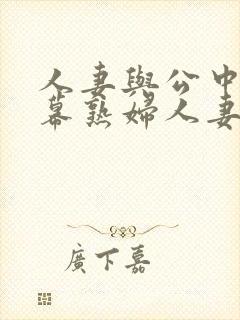 人妻與公中
幕熟婦人妻
廣下嘉